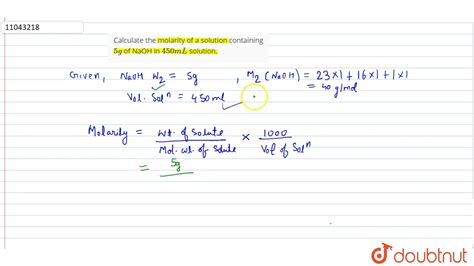 11043218
Calculate the molarity of a solution containing
5g of NaOH in 450mL solution,
Given, NaOH W2 = 5g , M2 (NaOH) = 23x1 + 16x1 + 1x1
= 40 g/mol
Vol. Solⁿ = 450 ml
Molarity = Wt. of Solute / Mol. wt. of Solute × 1000 / Vol of Solⁿ
= 5g
doubtnut